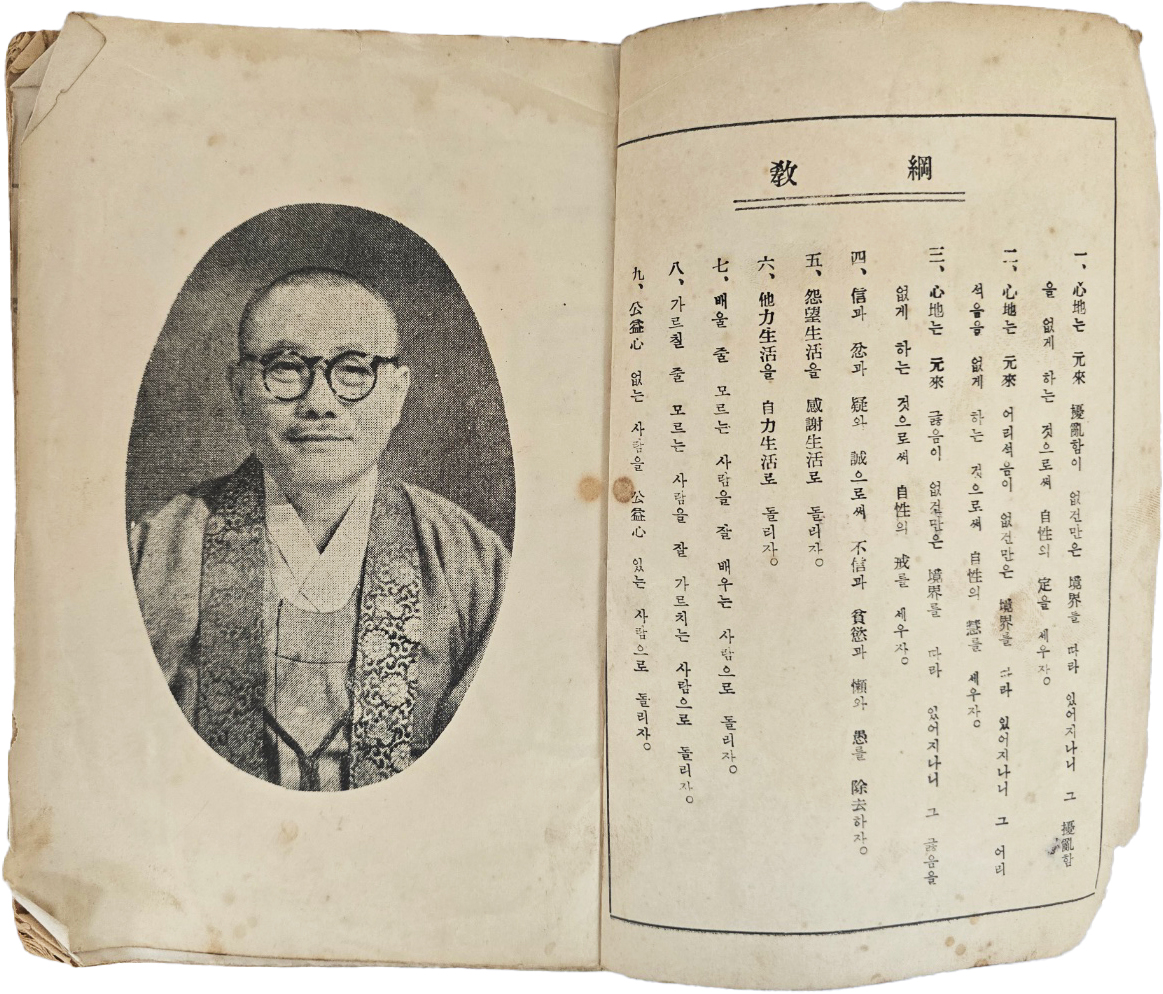 綱 敎
一、心地는 元來 擾亂함이 없건만은 境界를 따라 있어지나니 그 擾亂함
을 없게 하는 것으로써 自性의 定을 세우자。
二、心地는 元來 어리석음이 없건만은 境界를 따라 있어지나니 그 어리
석음을 없게 하는 것으로써 自性의 慧를 세우자。
三、心地는 元來 글음이 없건만은 境界를 따라 있어지나니 그 글음을
없게 하는 것으로써 自性의 戒를 세우자。
四、信과 忿과 疑와 誠으로써 不信과 貪慾과 懶와 愚를 除去하자。
五、怨望生活을 感謝生活로 돌리자。
六、他力生活을 自力生活로 돌리자。
七、배울 줄 모르는 사람을 잘 배우는 사람으로 돌리자。
八、가르칠 줄 모르는 사람을 잘 가르치는 사람으로 돌리자。
九、公益心 없는 사람을 公益心 있는 사람으로 돌리자。